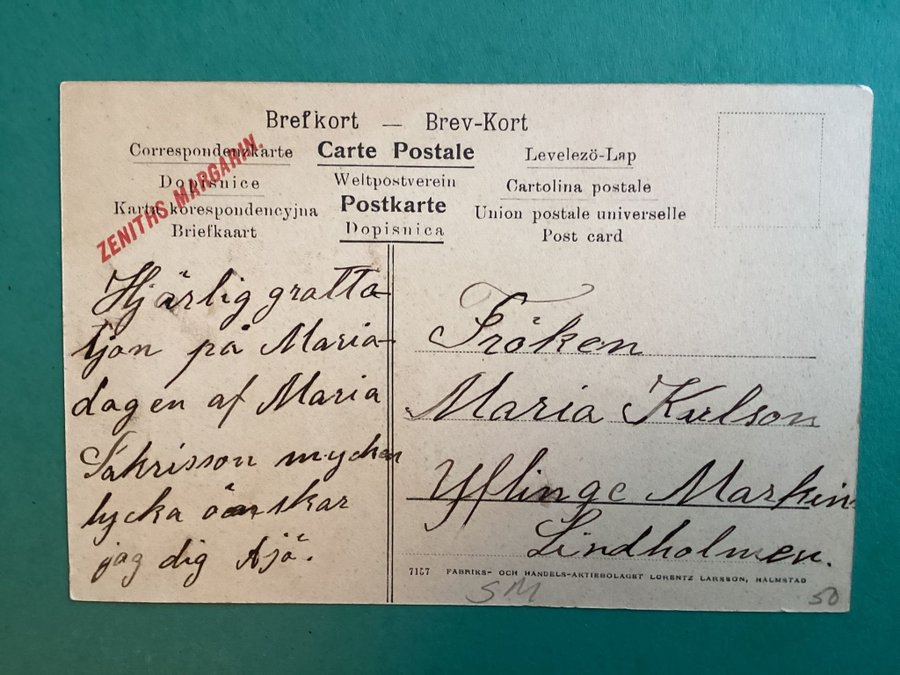 Brefkort — Brev-Kort
Correspondenzkarte Carte Postale Levelezö-Lap
Dopisnice Weltpostverein Cartolina postale
Karta korespondencyjna Postkarte Union postale universelle
Briefkaart Dopisnica Post card
ZENITHS MARGARIN.
Hjärlig gratta
tjon på Maria-
dagen af Maria
Sakrisson mycken
lycka önskar
jag dig Ajö.
Fröken
Maria Karlson
Yflinge Markin
Lindholmen.
7157 FABRIKS- OCH HANDELS-AKTIEBOLAGET LORENTZ LARSSON, HALMSTAD
SM
50